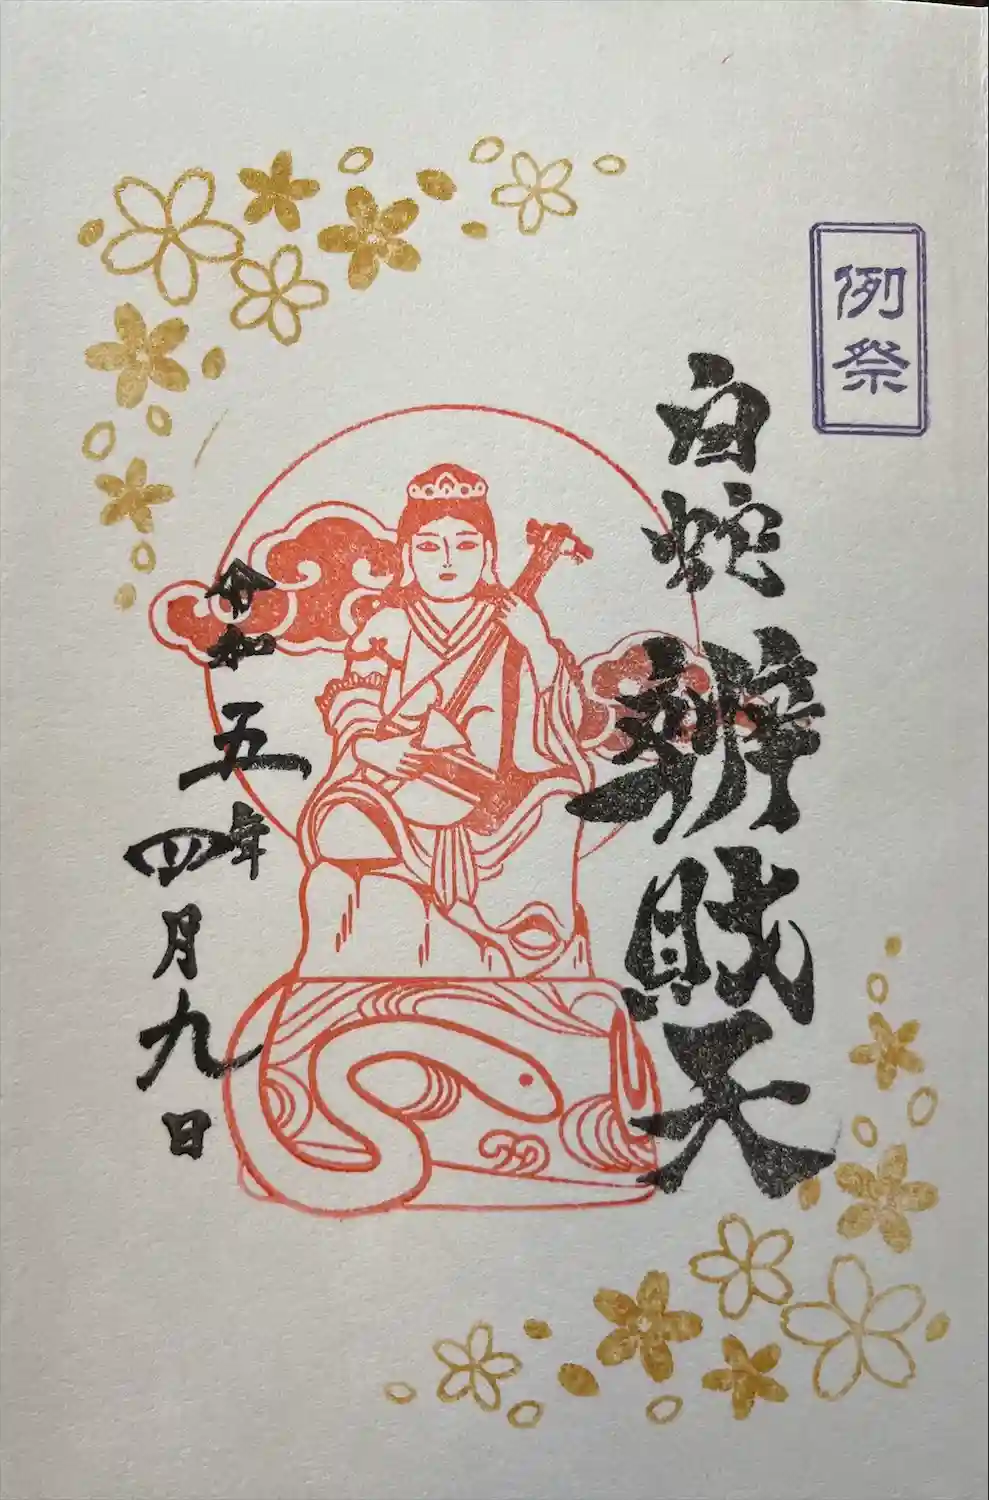 例祭
白蛇辨財天
令和五年四月九日